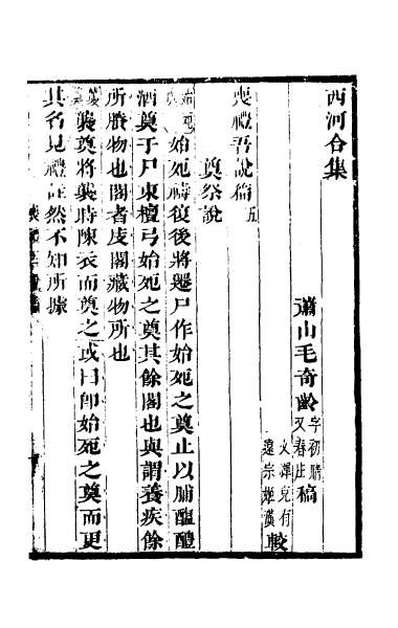 西河合集
蕭山毛奇齡字初晴又春庄稿
文輝充有
遠宗姬潢較
喪禮吾說篇五
奠祭說
始死奠
始死禱復後將遷尸作始死之奠止以脯醢醴
酒奠于尸東檀弓始死之奠其餘閣也與謂養疾餘
所賸物也閣者庋閣藏物所也
襲奠襲奠將襲時陳衣而奠之或曰卽始死之奠而更
其名見禮註然不知所據